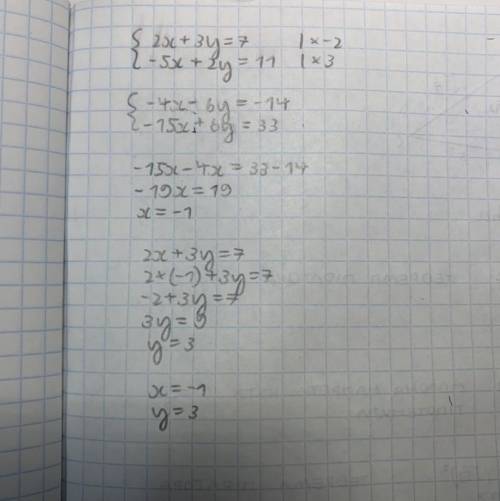 { 2x + 3y = 7 | × -2
{ -5x + 2y = 11 | × 3
{ -4x - 6y = -14
{ -15x + 6y = 33
-15x - 4x = 33 - 14
-19x = 19
x = -1
2x + 3y = 7
2 * (-1) + 3y = 7
-2 + 3y = 7
3y = 9
y = 3
x = -1
y = 3